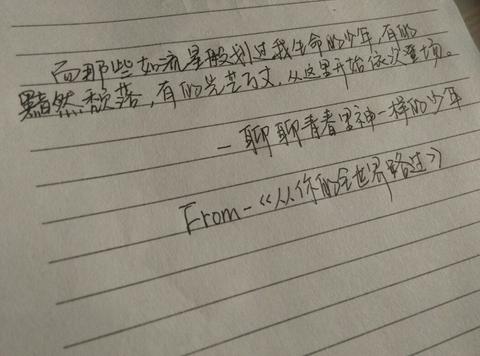 而那些如流星般划过我生命的少年，有的
黯然颓落，有的光芒万丈，从这里开始依次登场。
-聊聊青春里神一样的少年
From-《从你的全世界路过》